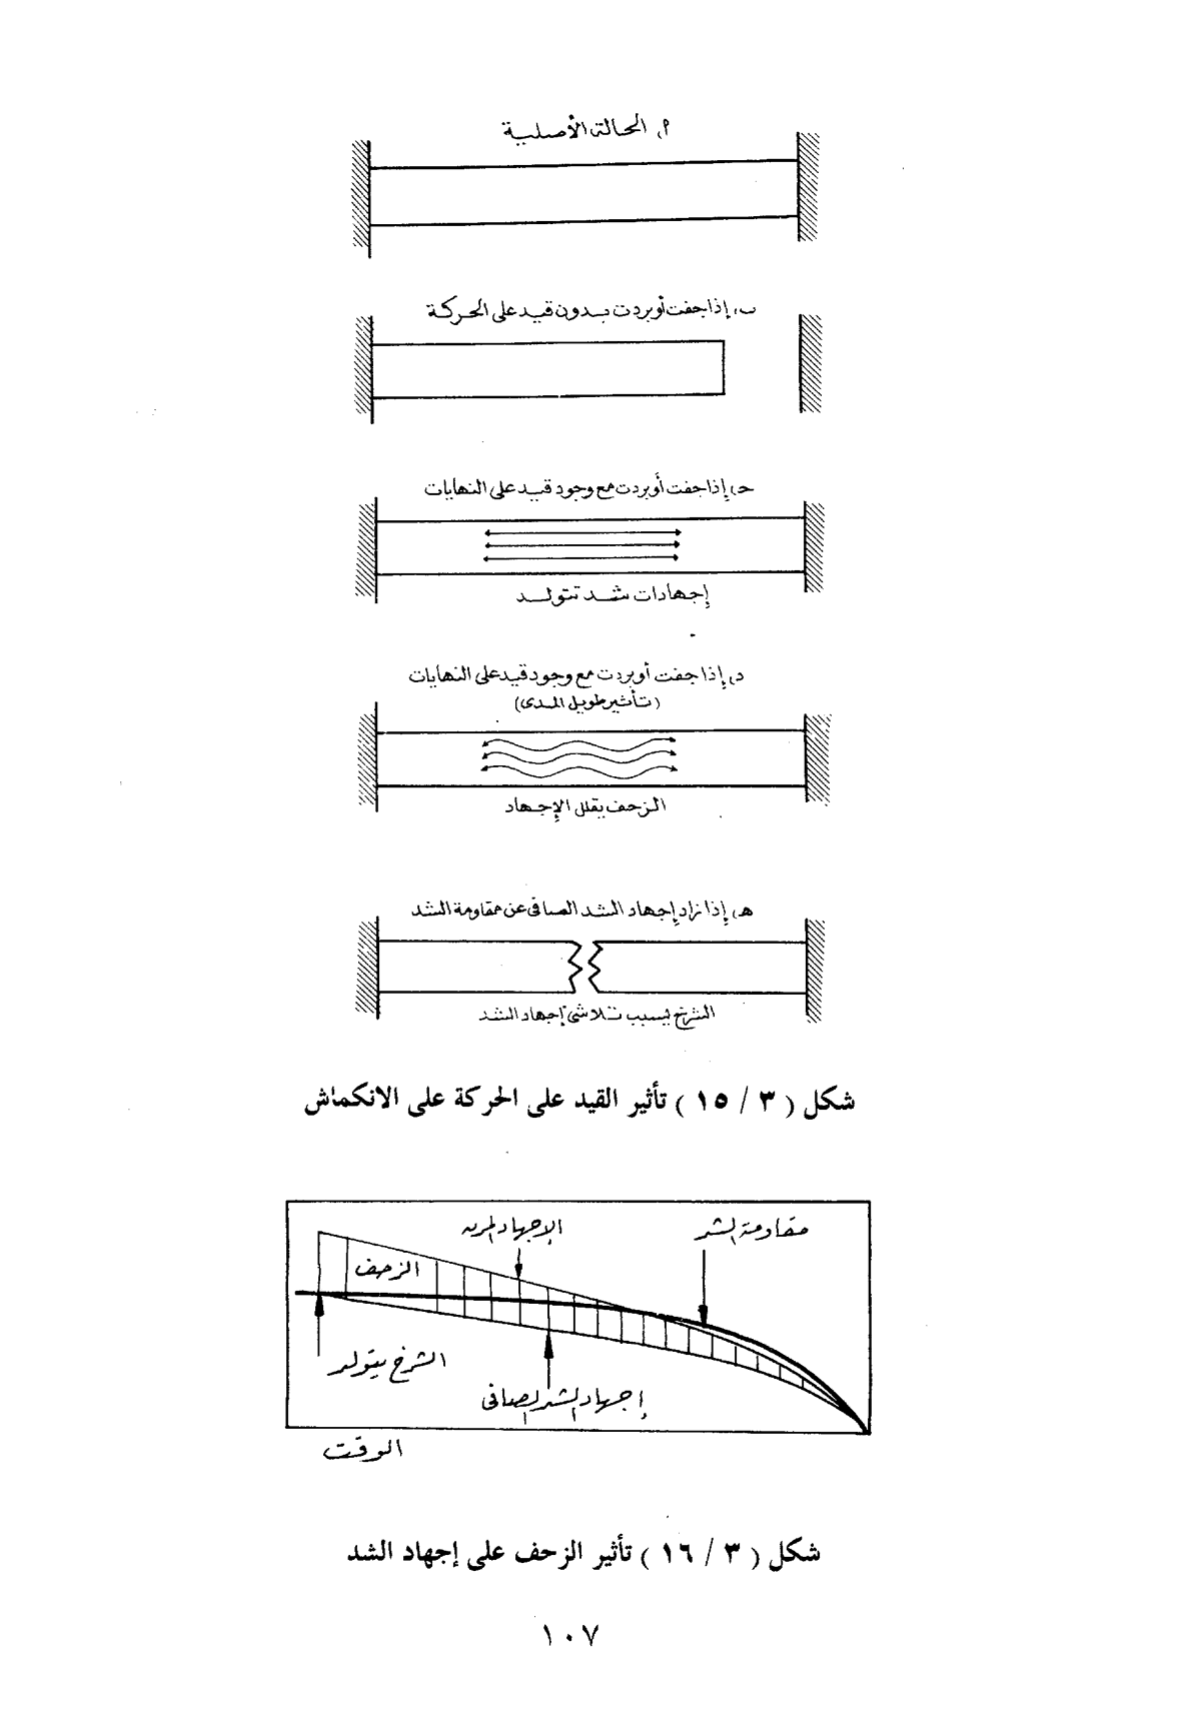 أ, الحالة الأصلية
ب, إذا جفت أو بردت بدون قيد على الحركة
حـ, إذا جفت أو بردت مع وجود قيد على النهايات
إجهادات شد تتولد
د, إذا جفت أو بردت مع وجود قيد على النهايات
(تأثير طويل المدى)
الزحف يقلل الإجهاد
هـ, إذا زاد إجهاد الشد الصافى عن مقاومة الشد
الشرخ يسبب تلاشى إجهاد الشد
شكل ( ٣ / ١٥ ) تأثير القيد على الحركة على الانكماش
مقاومة الشد
الإجهاد المرن
الزحف
الشرخ يتولد
إجهاد الشد الصافى
الوقت
شكل ( ٣ / ١٦ ) تأثير الزحف على إجهاد الشد
١٠٧